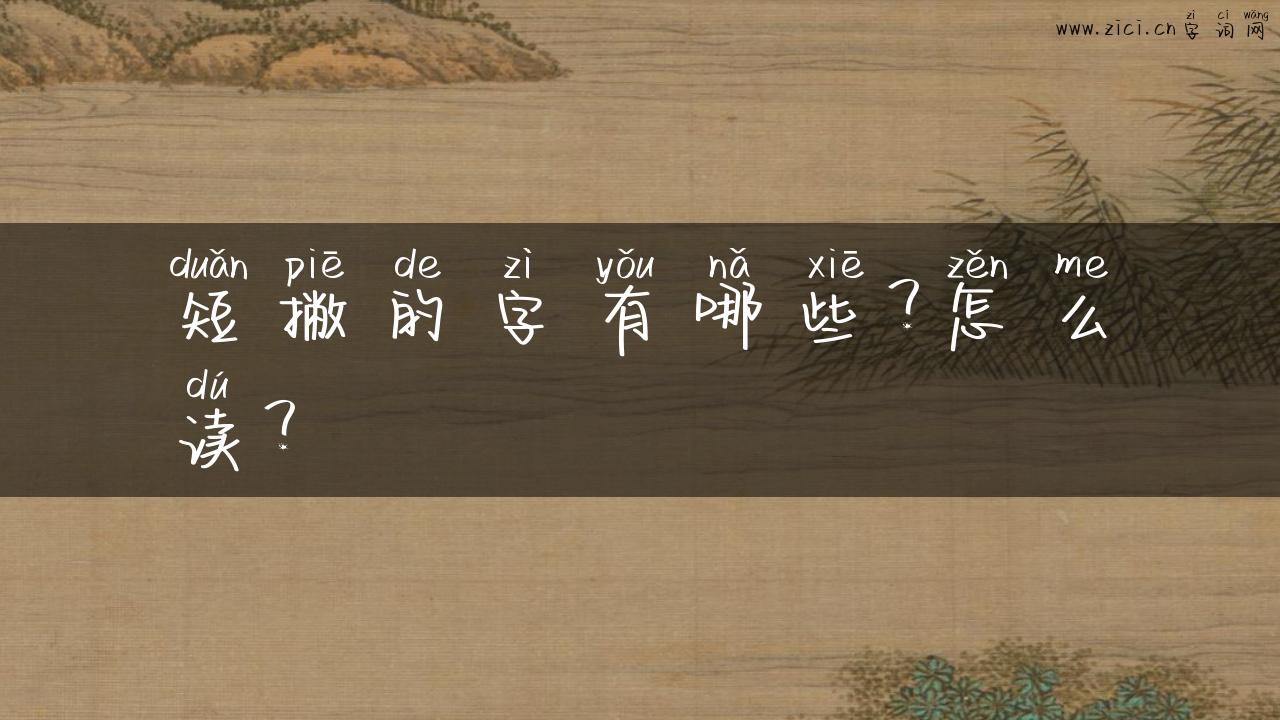 zì cí wǎng
www.zici.cn 字词网
duǎn piē de zì yǒu nǎ xiē zěn me
短撇的字有哪些？怎么
dú
读？